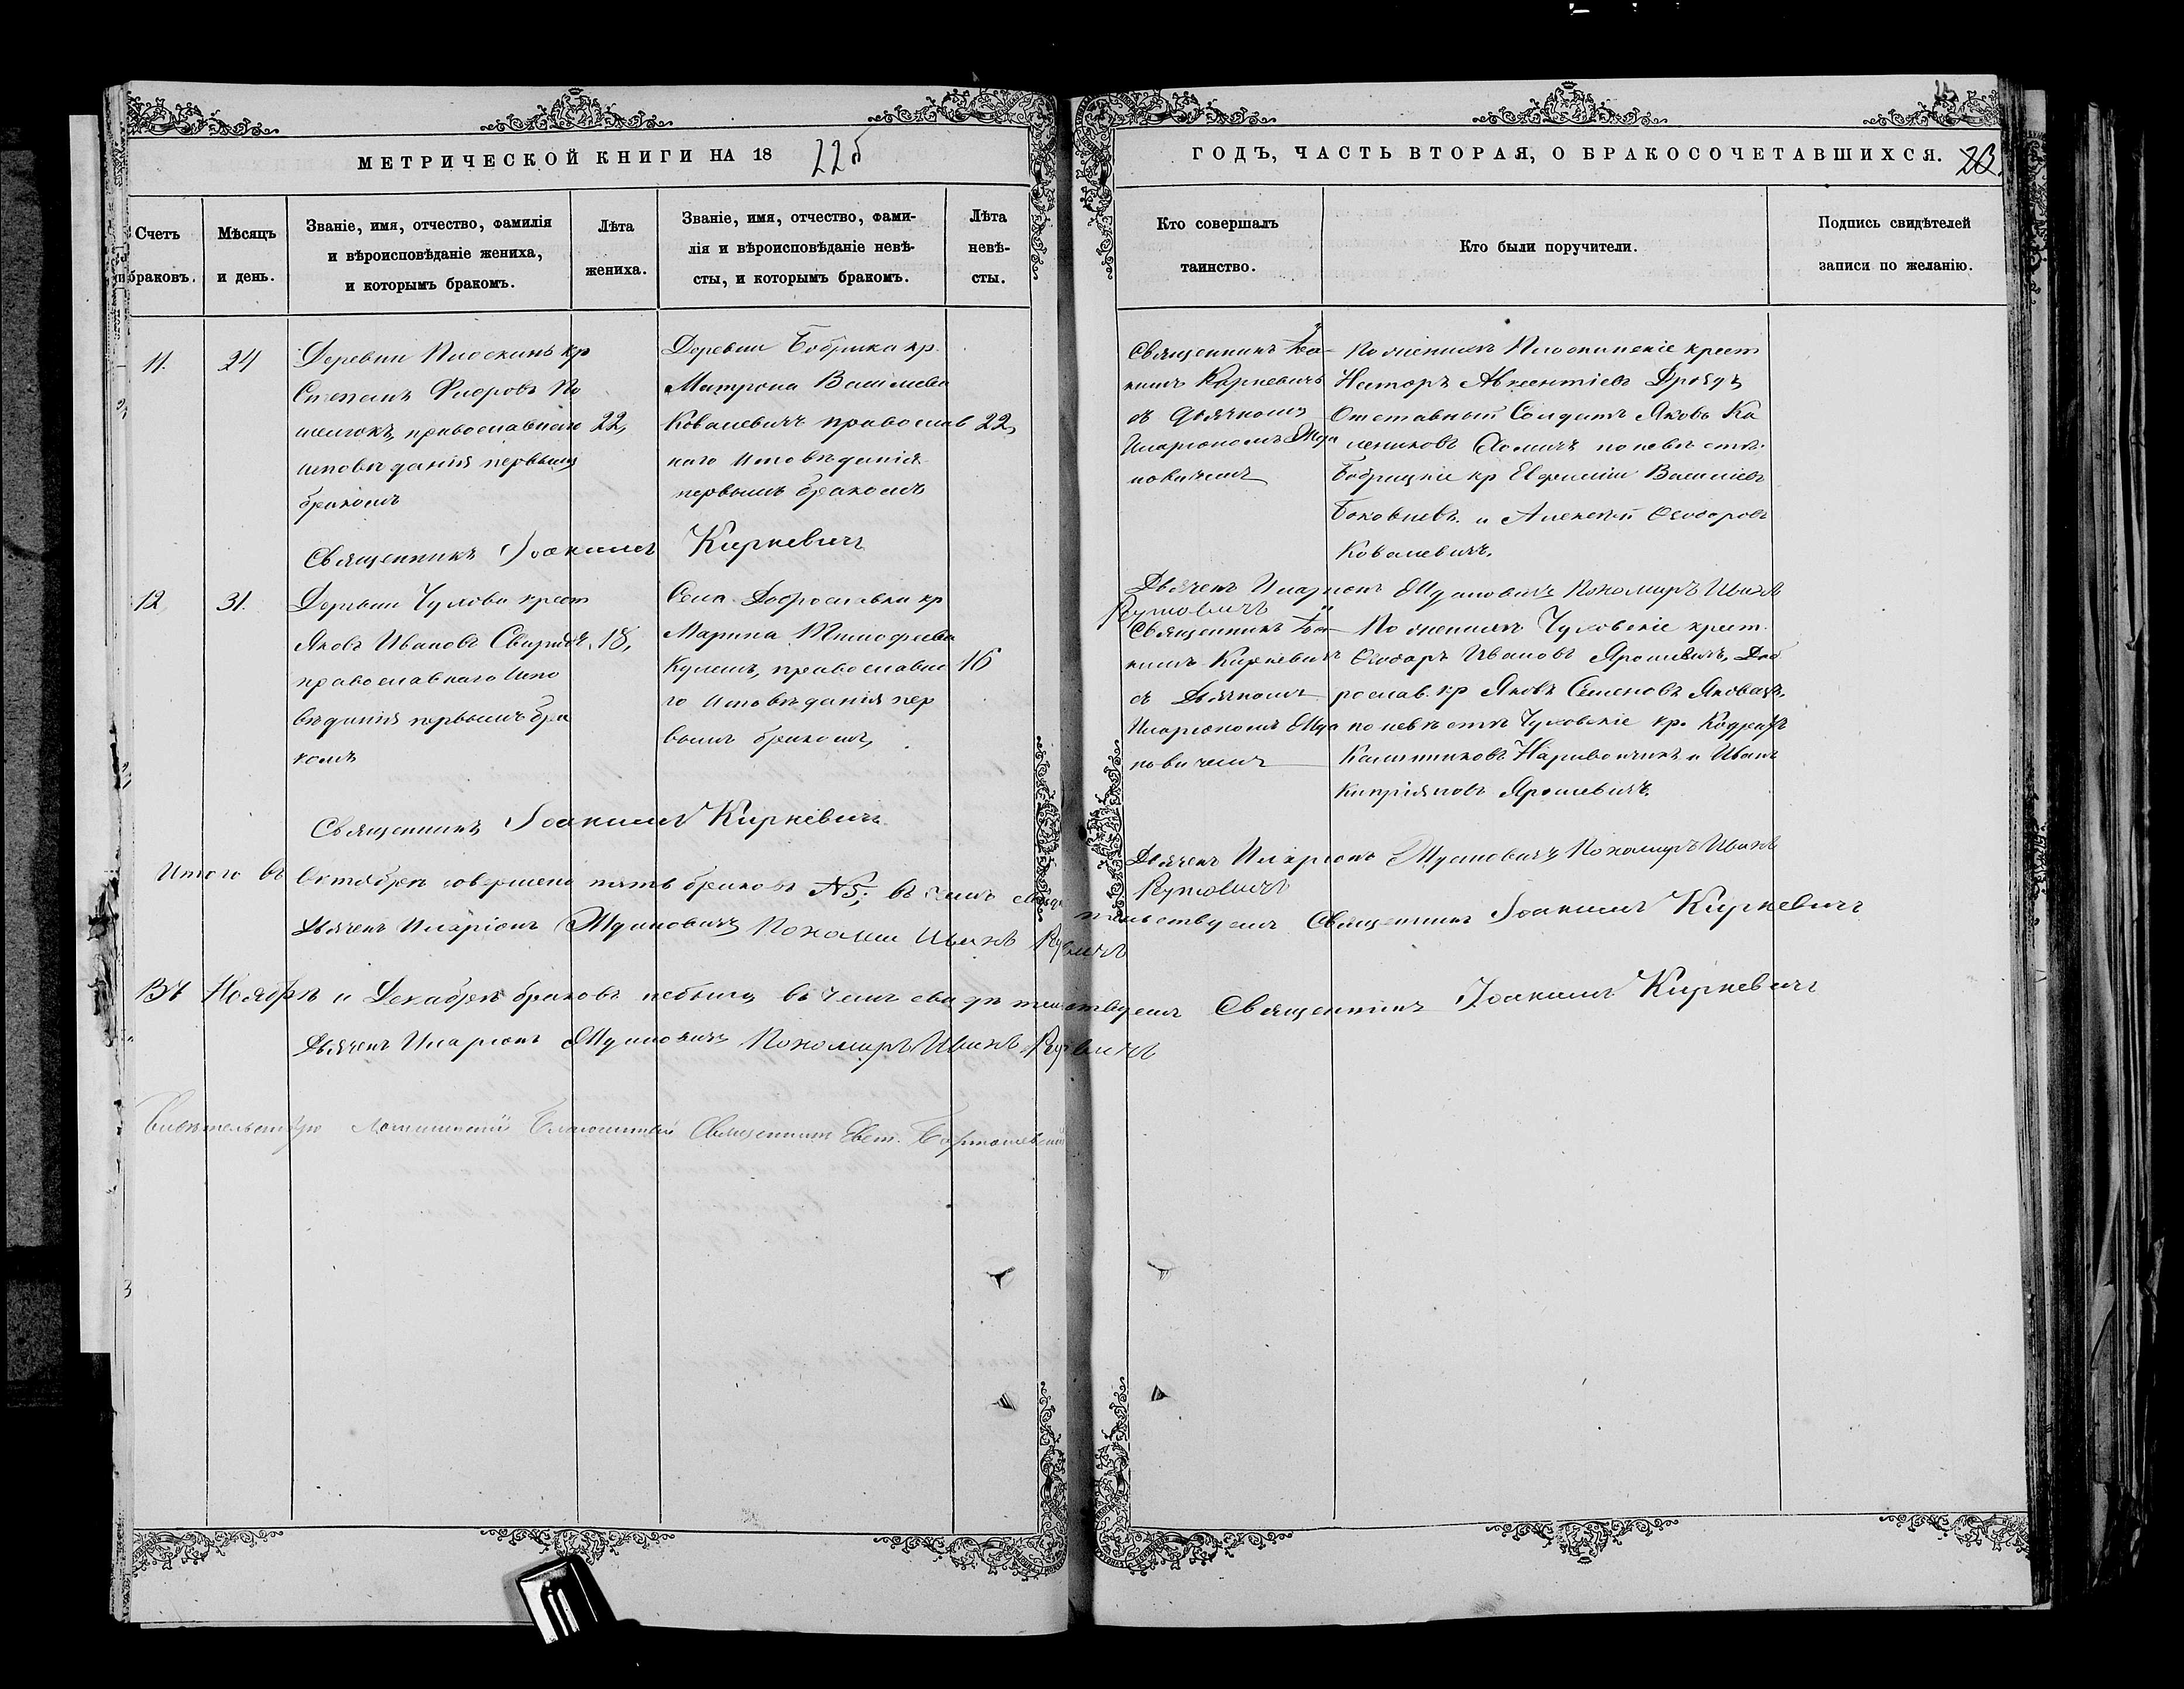 МЕТРИЧЕСКОЙ КНИГИ НА 18
22б
ГОДЪ, ЧАСТЬ ВТОРАЯ, О БРАКОСОЧЕТАВШИХСЯ.
23.
Счетъ
браковъ.
Мѣсяцъ
и день.
Званіе, имя, отчество, фамилія
и вѣроисповѣданіе жениха,
и которымъ бракомъ.
Лѣта
жениха.
Званіе, имя, отчество, фами-
лія и вѣроисповѣданіе невѣ-
сты, и которымъ бракомъ.
Лѣта
невѣ-
сты.
Кто совершалъ
таинство.
Кто были поручители.
Подпись свидѣтелей
записи по желанію.
11.
24
Деревни Плоскинь кр
Степанъ Флоровъ По
православнаго
исповѣданія первымъ
бракомъ
22,
Деревни Бобрика кр.
Матрона Васильева
Ковалевичъ православ
наго исповѣданія
первымъ бракомъ
22,
Священникъ Іоа-
кимъ Киркевичъ
съ дьячкомъ
Иларіономъ Жда
новичемъ
По женихѣ Плоскинскіе крест
Несторъ Авксентіевъ Дроздъ
Отставный Солдатъ Яковъ Ка
лениковъ Хомичъ по невѣстѣ
Бобрицкіе кр Евфимій Василіевъ
и Алексѣй Ѳеодоровъ
Ковалевичъ.
Священникъ Іоакимъ Киркевичъ
Дьячекъ Иларіонъ Ждановичъ Пономаръ Иванъ
12
31.
Деревни Чухова крест
Яковъ Ивановъ
православнаго Испо
вѣданія первымъ бра
комъ
18,
Села Доброславки кр
Марина Тимофеева
Кулешъ, православна
го исповѣданія пер
вымъ бракомъ,
16
Священникъ Іоа-
кимъ Киркевичъ
съ Дьячкомъ
Иларіономъ Жда
новичемъ
По женихѣ Чуховскіе крест.
Ѳеодоръ Ивановъ Ярошевичъ, Доб
рослав. кр Яковъ Семеновъ
по невѣстѣ Чуховскіе кр. Кодратъ
и Иванъ
Кипріяновъ Ярошевичъ.
Священникъ Іоакимъ Киркевичъ
Дьячекъ Иларіонъ Ждановичъ Пономаръ Иванъ
Итого въ Октябрѣ совершено пять браковъ №5; въ чемъ свидѣтельствуемъ Священникъ Іоакимъ Киркевичъ
Дьячекъ Иларіонъ Ждановичъ Пономаръ Иванъ
Въ Ноябрѣ и Декабрѣ браковъ небыло въ чемъ свидѣтельствуемъ Священникъ Іоакимъ Киркевичъ
Дьячекъ Иларіонъ Ждановичъ Пономаръ Иванъ
Благочинный Священникъ